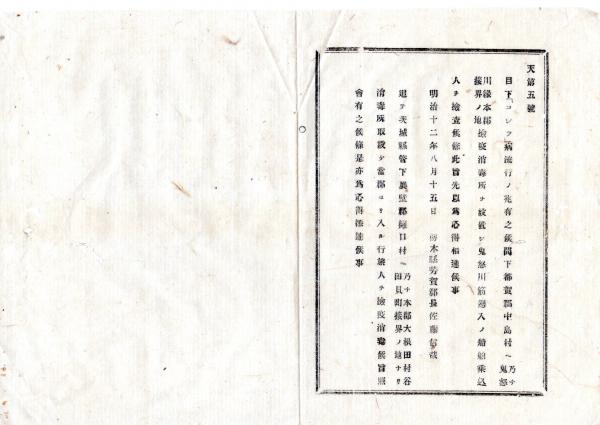 天第五號
目下「コレラ」病流行ノ兆有之候間下都賀郡中島村ヘ 乃チ鬼怒
川縁本郡接界ノ地 檢疫消毒所ヲ設置シ鬼怒川筋廻入ノ船舶乘込
人ヲ檢査候條此旨先以爲心得相達候事
明治十二年八月十五日 栃木縣芳賀郡長佐藤信成
追テ茨城縣管下眞壁郡樋口村ヘ 乃チ本郡大根田村谷田貝町接界ノ地ナリ
消毒所取設ケ當郡ヨリ入ル行旅人ヲ檢疫消毒候旨照
會有之候條是亦爲心得相達候事